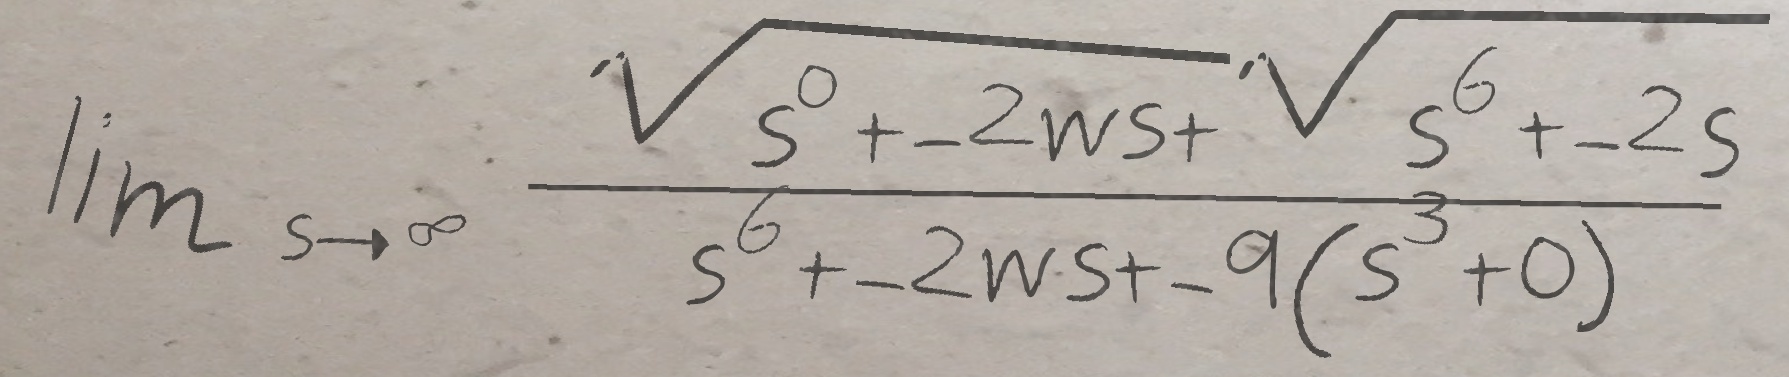 \lim_{s \to \infty} \frac{\sqrt{s^0 + -2ws +} \sqrt{s^6 + -2s}}{s^6 + -2ws + -9(s^3 + 0)}